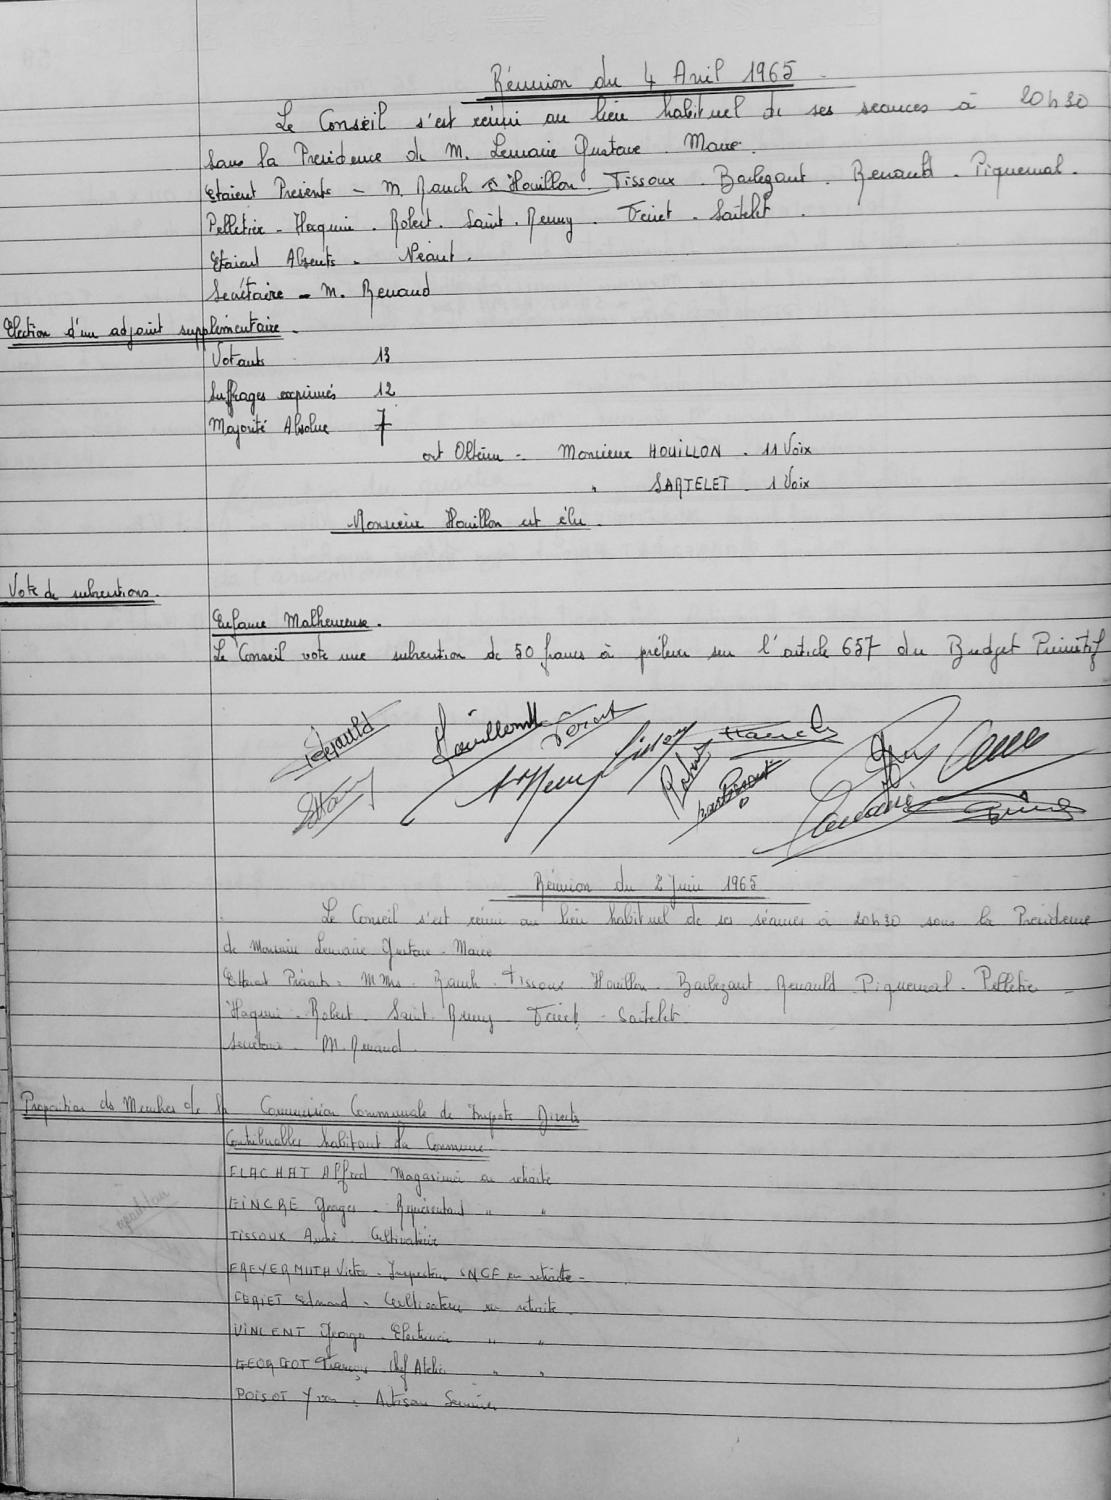 Réunion du 4 Avril 1965
Le Conseil s'est réuni au lieu habituel de ses séances à 20h30
sous la Présidence de M. Lemaire Gustave. Maire.
Etaient Présents - M. Rauch & Houillon. Tissoux. Barbezant. Renauld. Piquemal.
Pelletier - Haquin. Robert. Saint. Remy. Feriet. Sartelet.
Etaient Absents - Néant.
Secrétaire - M. Renaud
Election d'un adjoint supplémentaire.
Votants 13
Suffrages exprimés 12
Majorité Absolue 7
ont Obtenu - Monsieur HOUILLON. 11 Voix
" SARTELET. 1 Voix
Monsieur Houillon est élu.
Vote de subventions.
Enfance Malheureuse.
Le Conseil vote une subvention de 50 francs à prélever sur l'article 657 du Budget Primitif
Réunion du 2 Juin 1965
Le Conseil s'est réuni au lieu habituel de ses séances à 20h30 sous la Présidence
de Monsieur Lemaire Gustave - Maire
Etaient Présents. MMrs. Rauch. Tissoux. Houillon. Barbezant. Renauld. Piquemal. Pelletier -
Haquin. Robert. Saint. Remy - Feriet - Sartelet.
Secrétaire. M. Renaud.
Proposition des Membres de la Commission Communale de Impots Directs
Contribuables habitant la Commune
FLACHAT Alfred. Magasinier en retraite
EINCRE Georges - Représentant " "
TISSOUX André. Cultivateur
FREYERMUTH Victor. Inspecteur SNCF en retraite -
FERIET Edmond. Cultivateur en retraite.
VINCENT George. Electricien " "
GEORGOT François Chef Atelier " "
POISOT Yvon. Artisan Serrurier